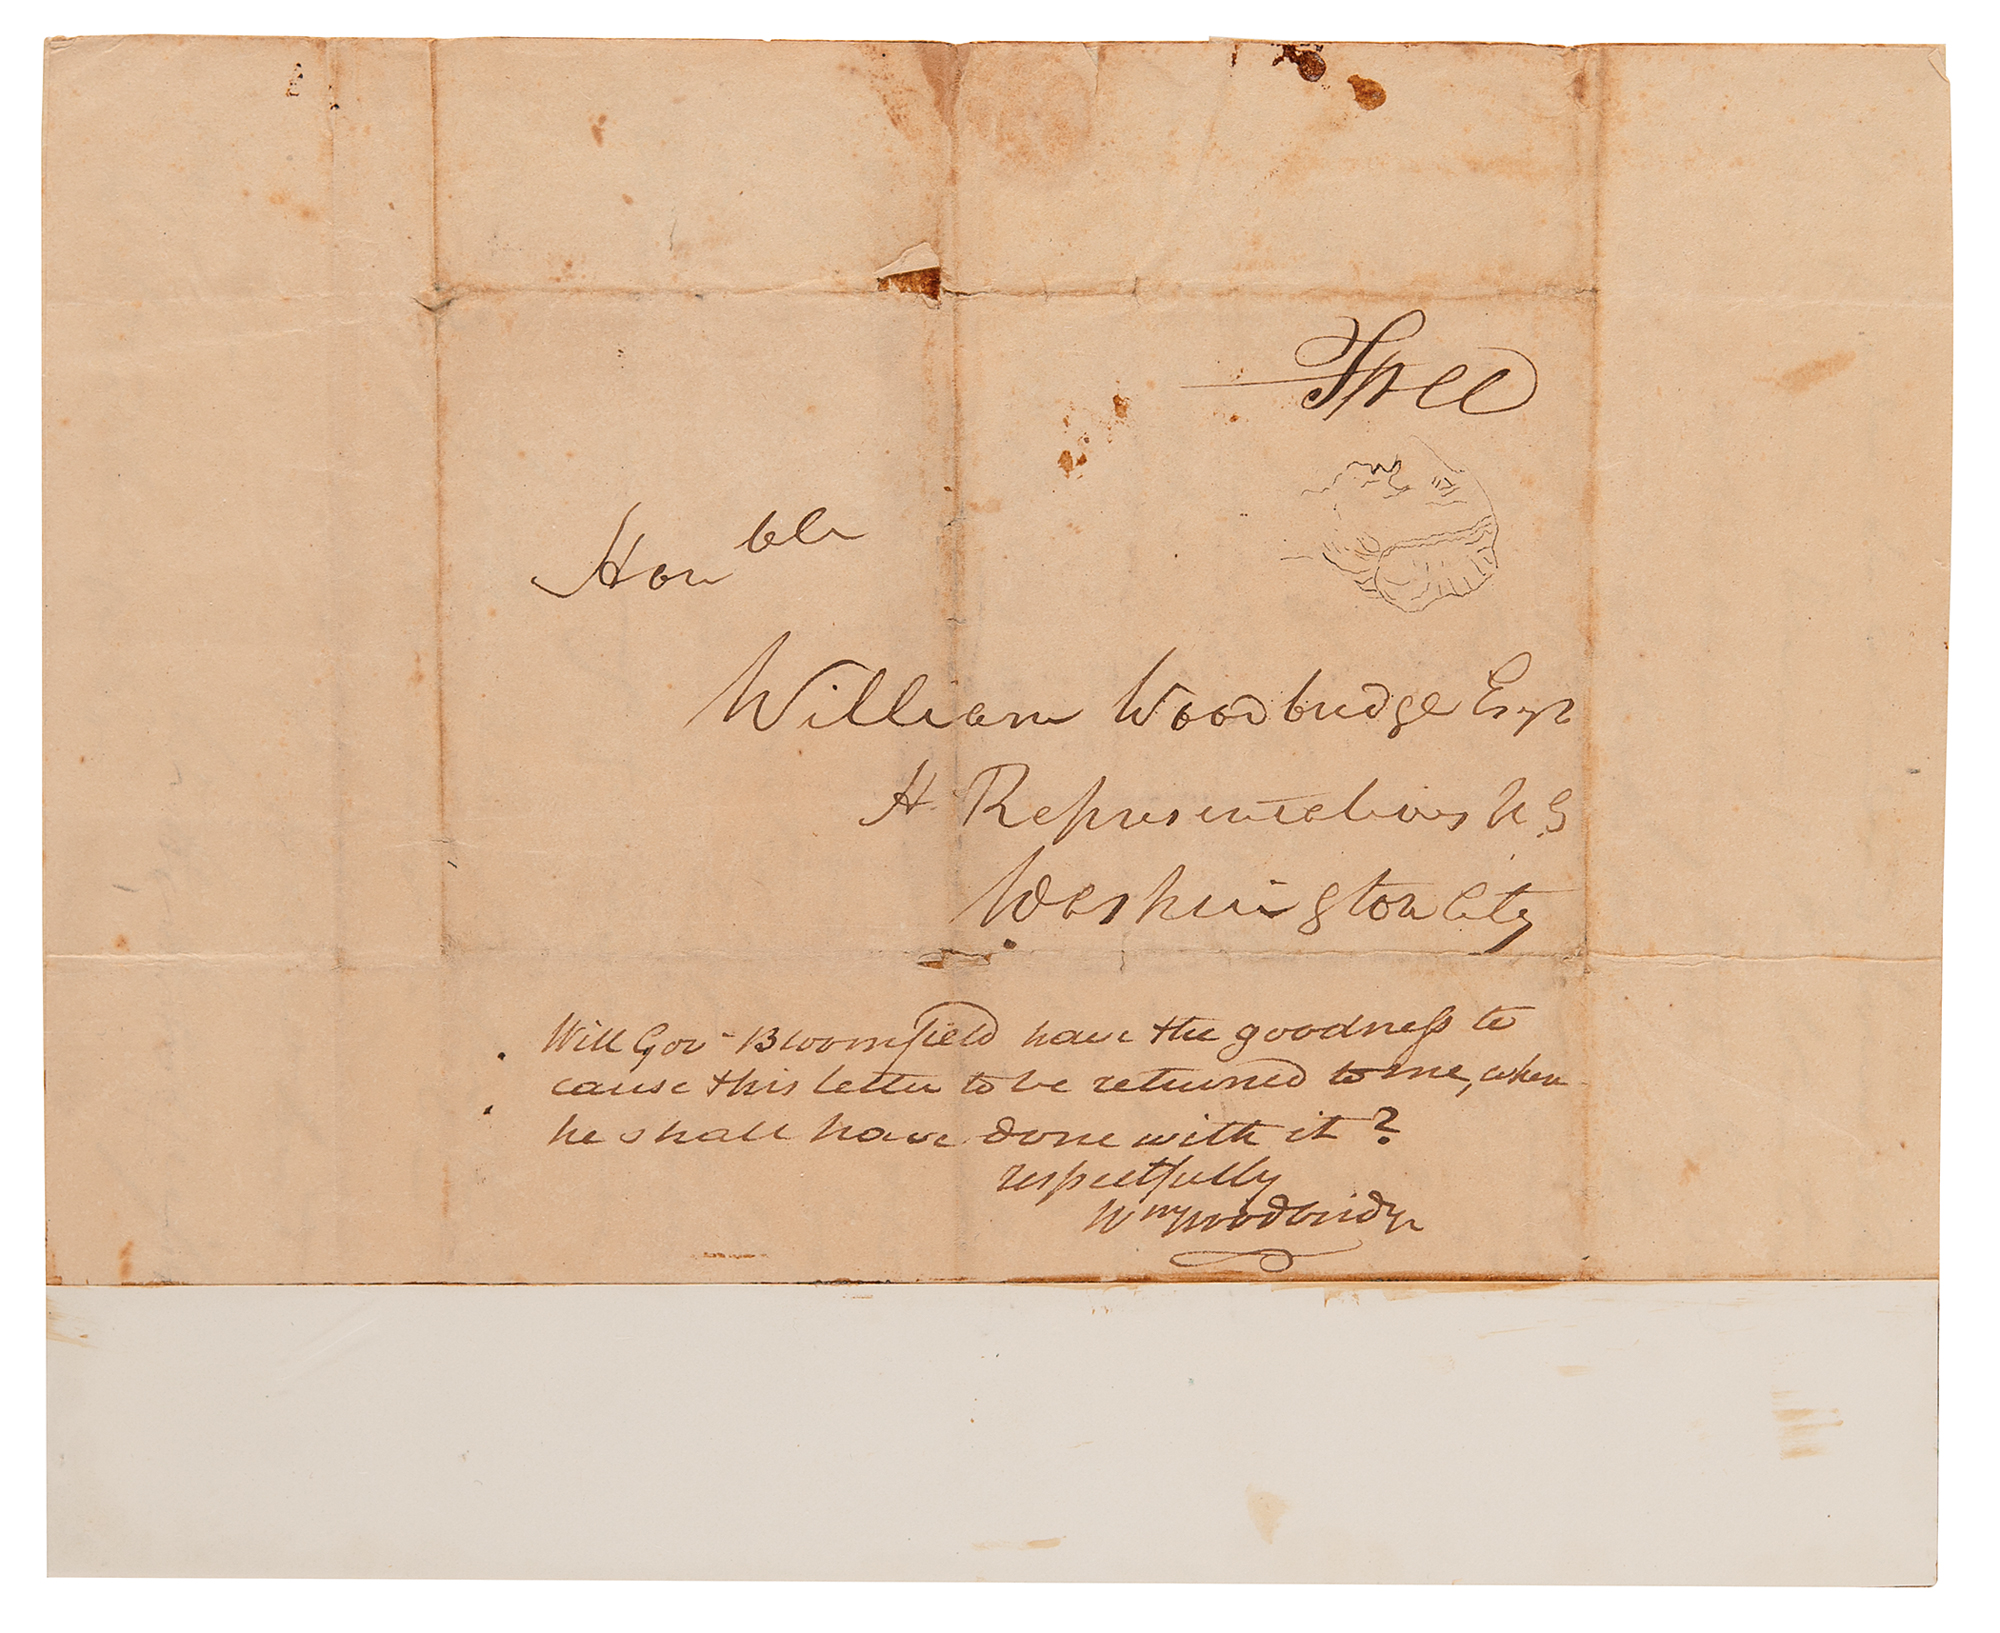 Free
Honble
William Woodbridge Esqr
H. Representatives U.S
Washington City
Will Govr Bloomfield have the goodness to
cause this letter to be returned to me, when
he shall have done with it?
respectfully
Wm Woodbridge